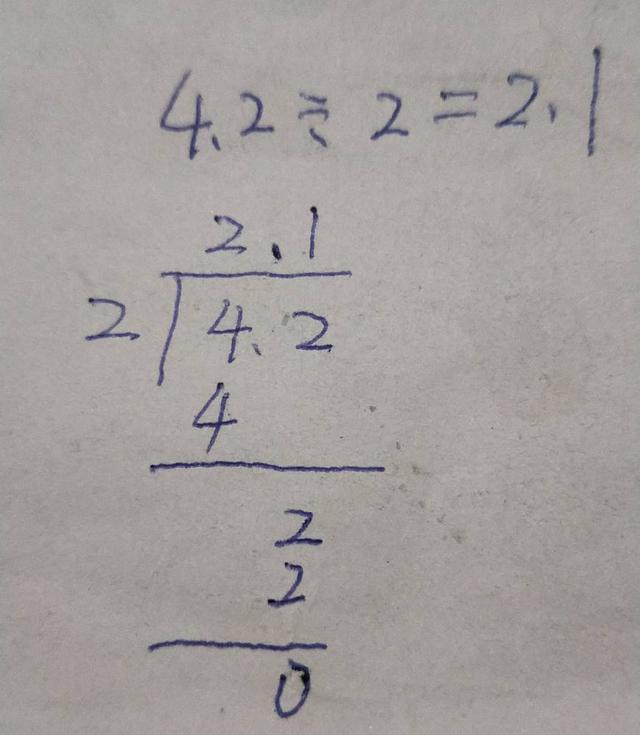 4.2÷2=2.1
2.1
2 4.2
4
2
2
0